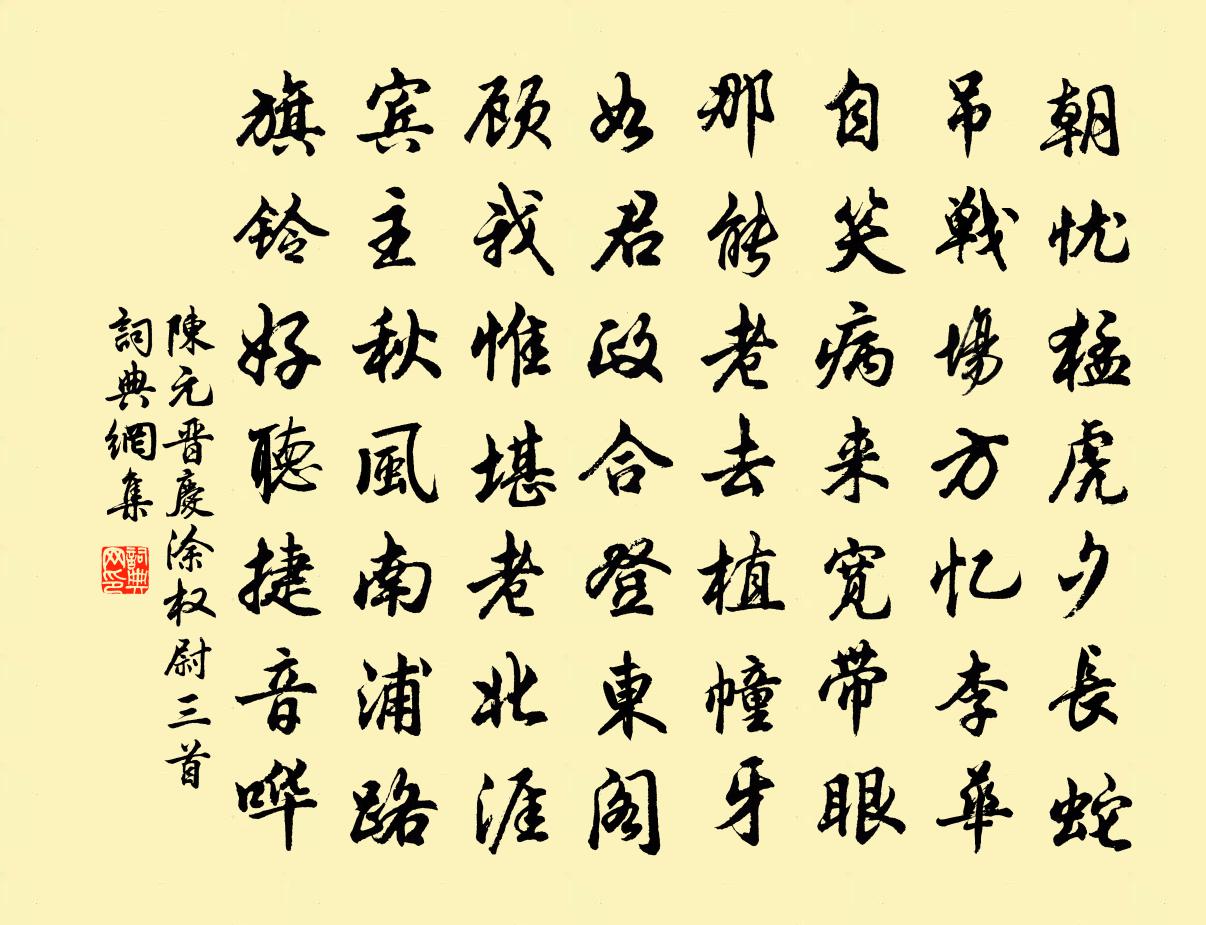 朝忧猛虎夕長蛇
吊戦場方忆李華
自笑病来寛带眼
那能老去植幢牙
如君政合登東阁
顾我惟堪老北涯
宾主秋風南浦路
旗铃好聴捷音哗
陳元晋慶涂权尉三首
詞典網集
詞典网印